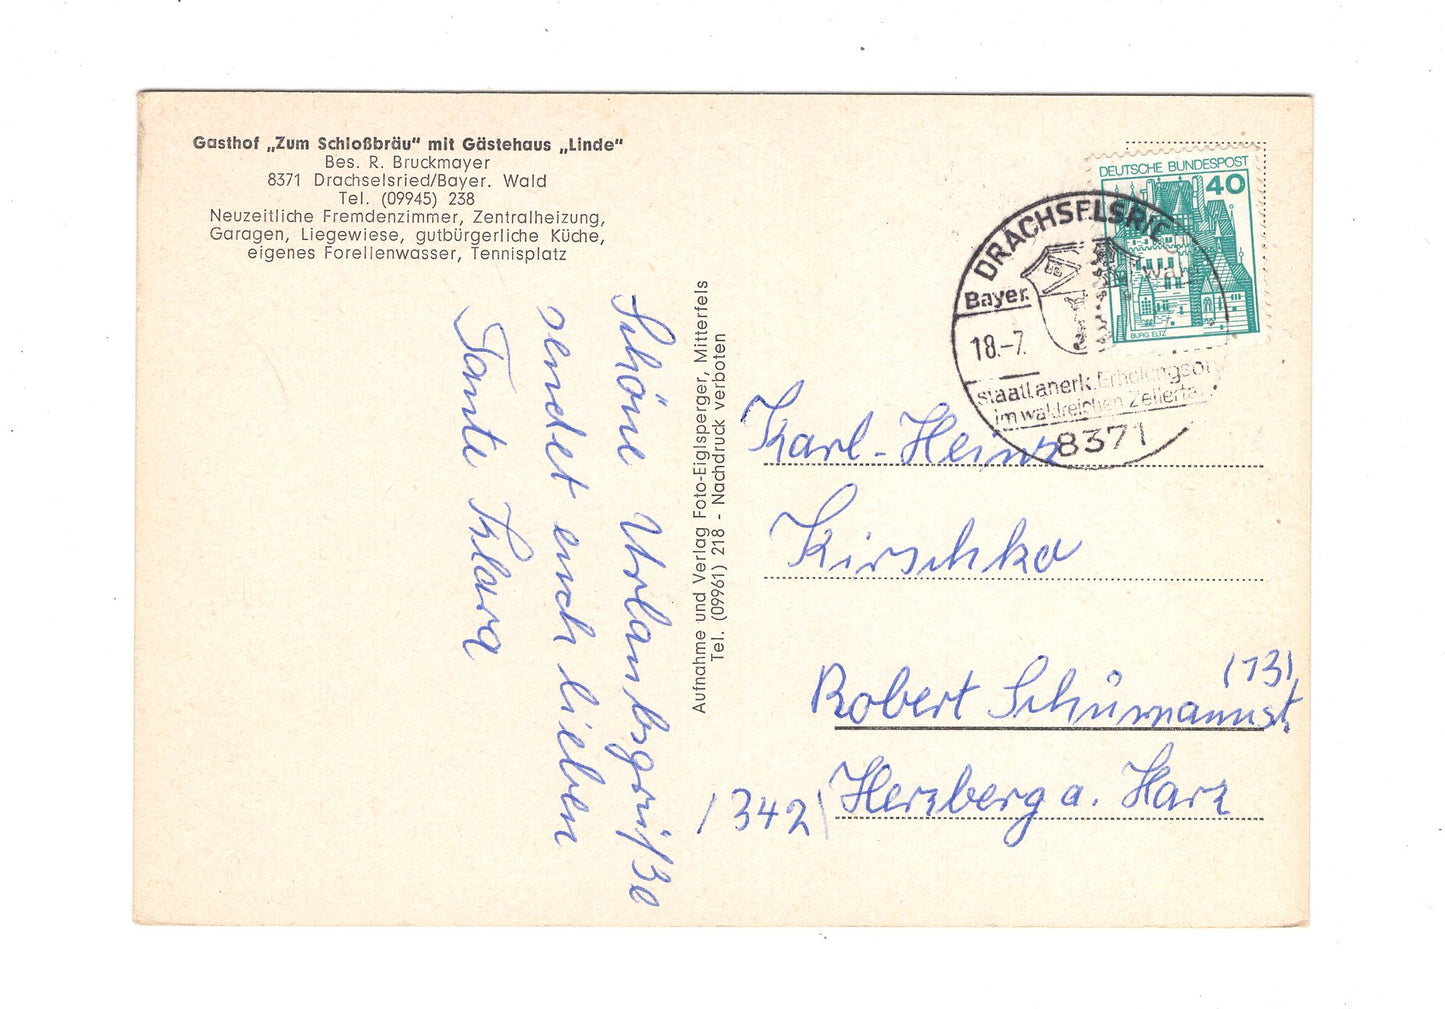 Gasthof „Zum Schloßbräu" mit Gästehaus „Linde"
Bes. R. Bruckmayer
8371 Drachselsried/Bayer. Wald
Tel. (09945) 238
Neuzeitliche Fremdenzimmer, Zentralheizung,
Garagen, Liegewiese, gutbürgerliche Küche,
eigenes Forellenwasser, Tennisplatz
Schöne Urlaubsgrüße
sendet euch lieben
Tante Klara
Aufnahme und Verlag Foto-Eiglsperger, Mitterfels
Tel. (09961) 218 - Nachdruck verboten
DEUTSCHE BUNDESPOST
40
BURG ELTZ
DRACHSELSRIE
Bayer. Wald
18.-7.
staatl. anerk. Erholungsor
im waldreichen Zellerta
8371
Karl-Heinz
Kirschke
(13)
Robert Schumannst.
/342/ Herzberg a. Harz